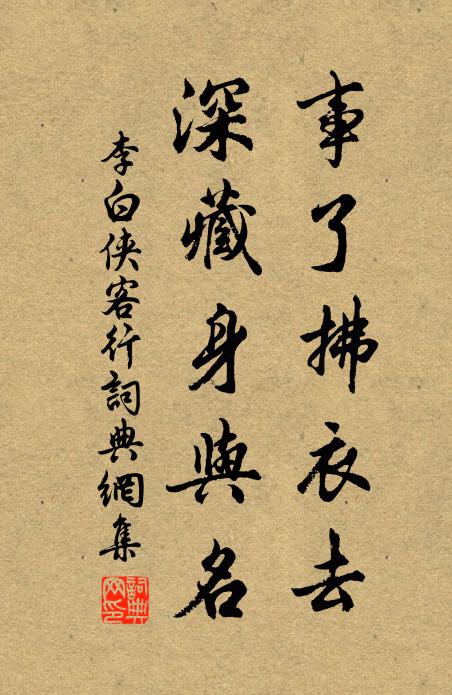 事了拂衣去
深藏身與名
李白俠客行詞典網集
詞典網印